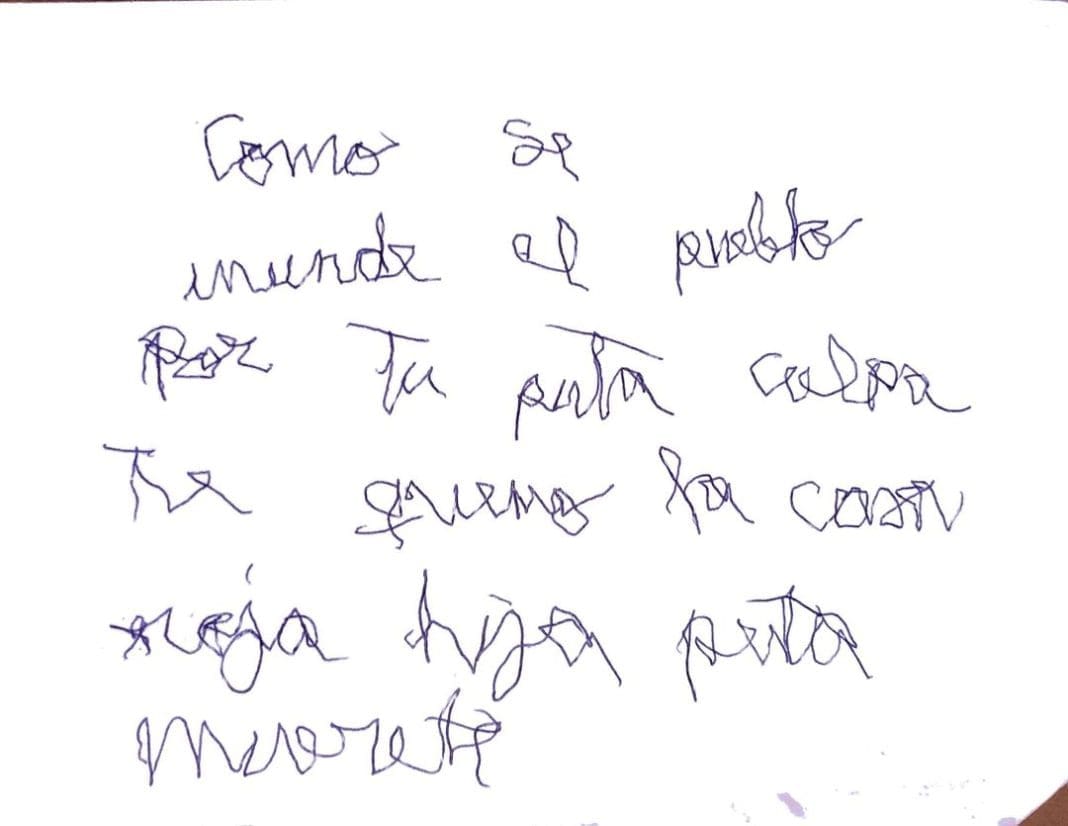 Como se
inunde el pueblo
Por Tu puta culpa
Te quemo la casa
roja hija puta
muerete